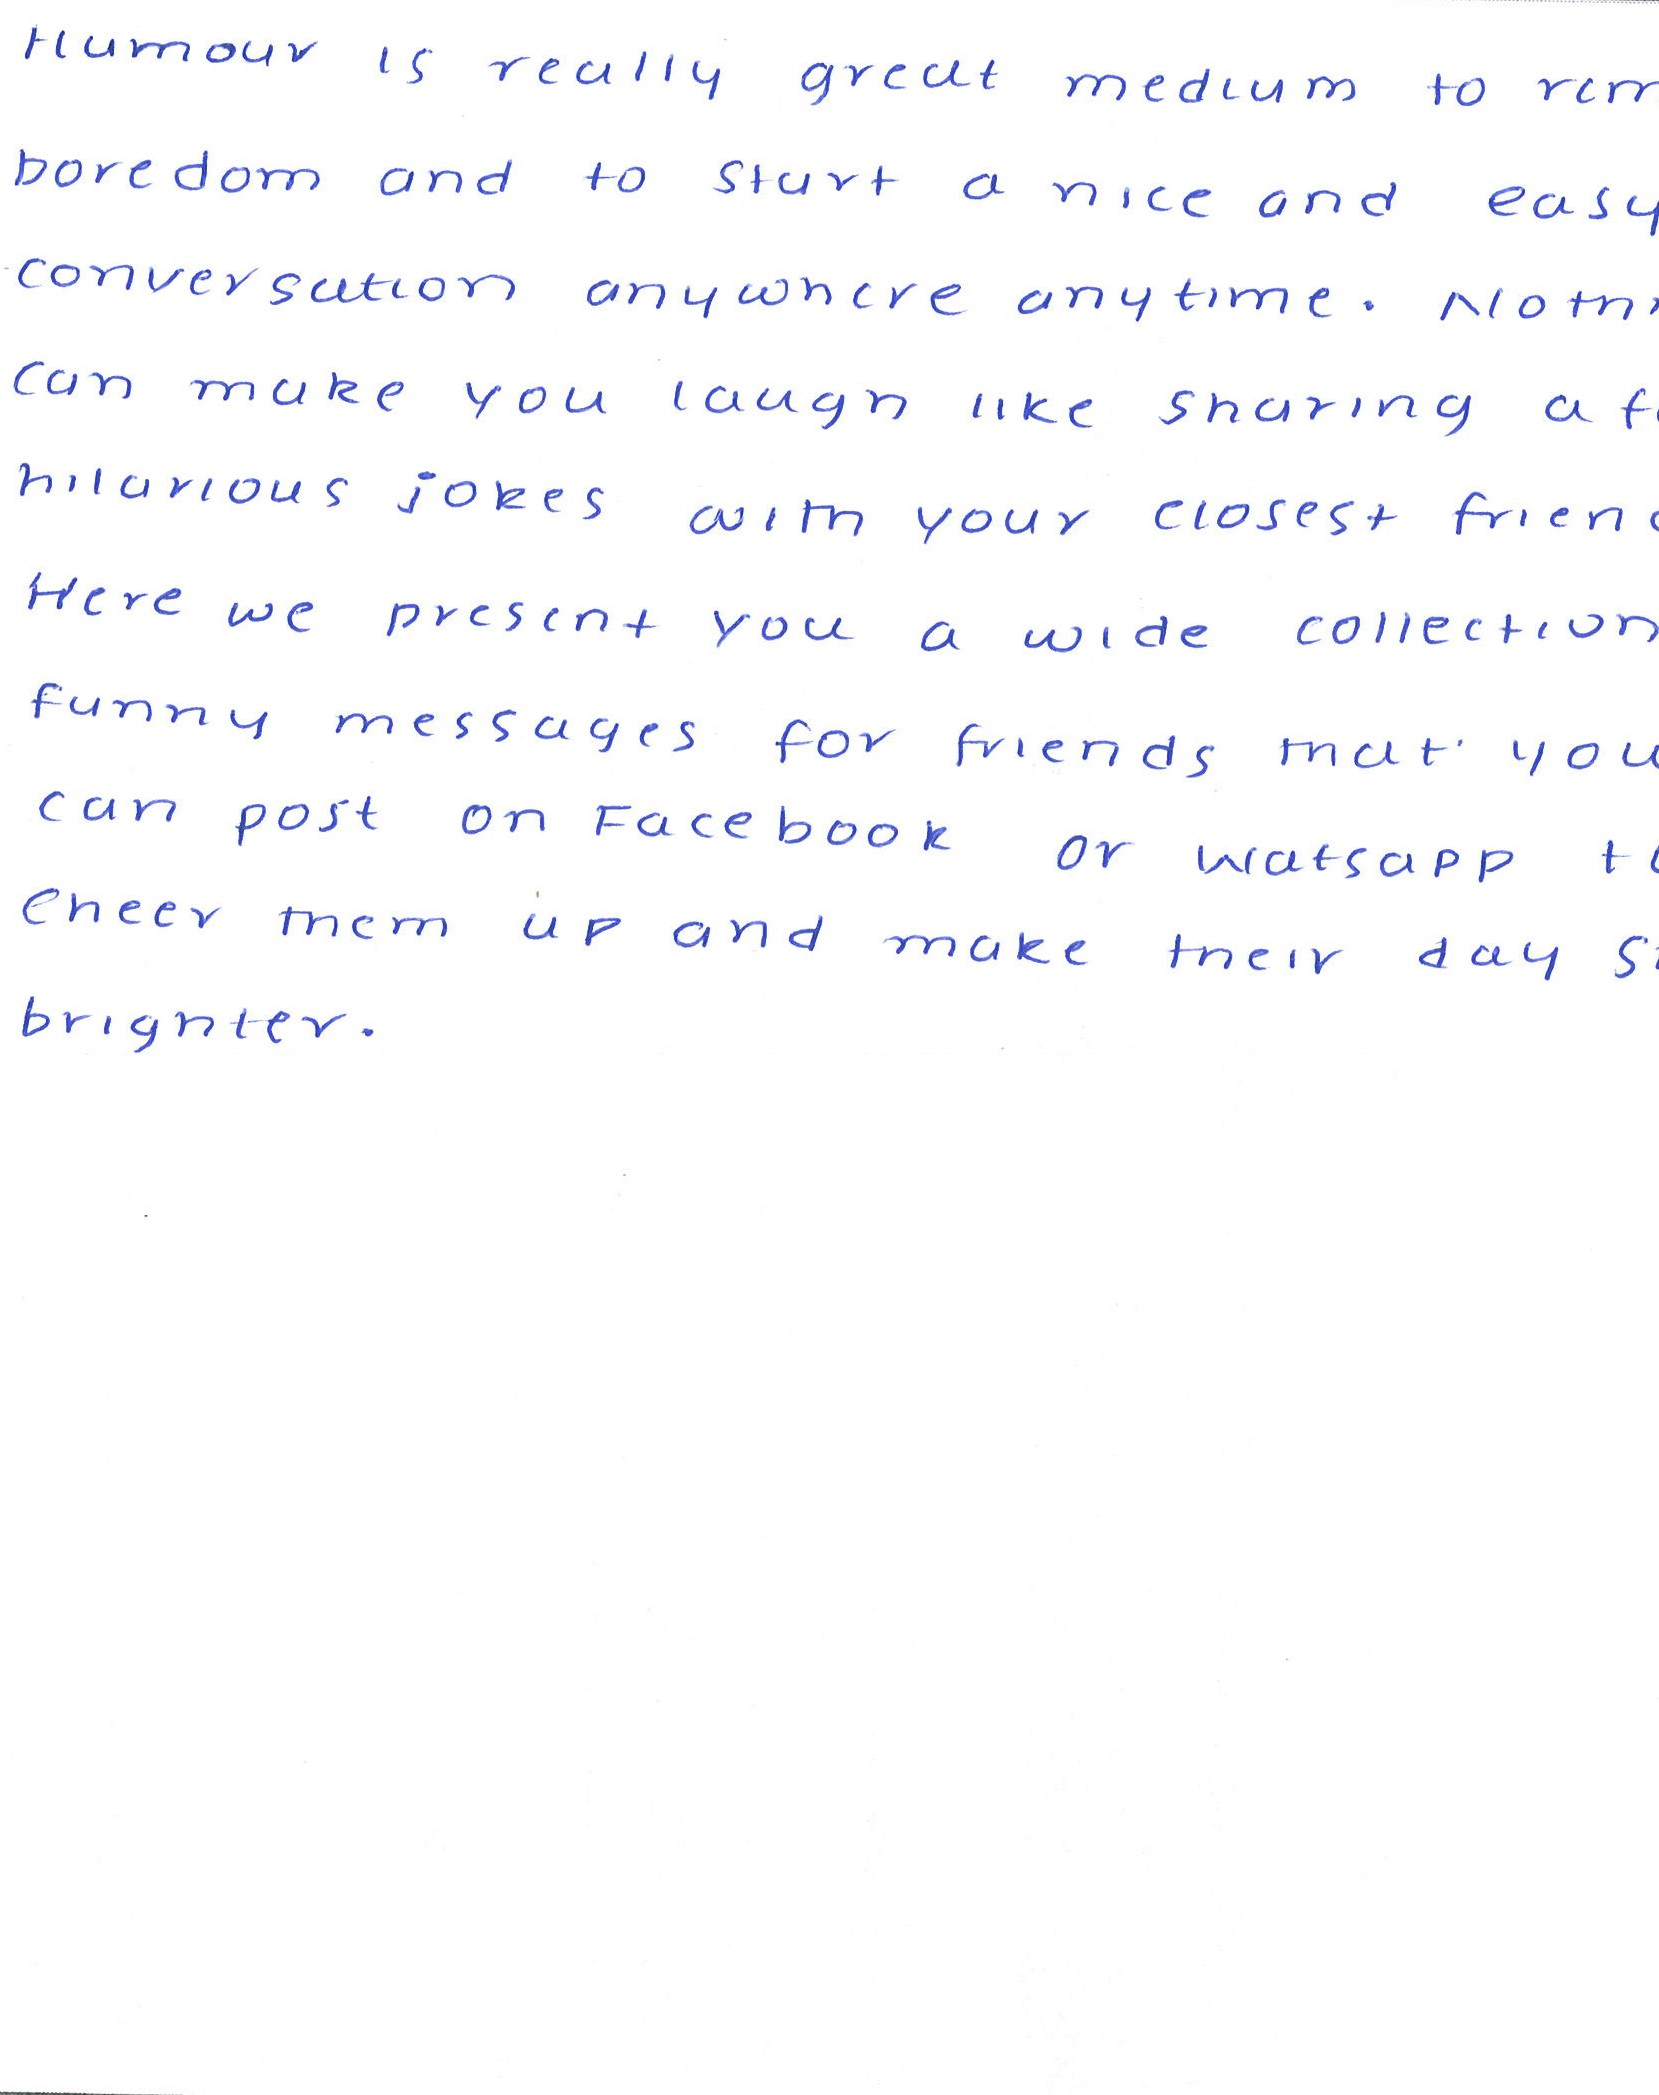 Humour is really great medium to rem
boredom and to start a nice and easy
conversation anywhere anytime. Nothi
can make you laugh like sharing a f
hilarious jokes with your closest frien
Here we present you a wide collection
funny messages for friends that you
can post on Facebook or Watsapp to
cheer them up and make their day s
brighter.